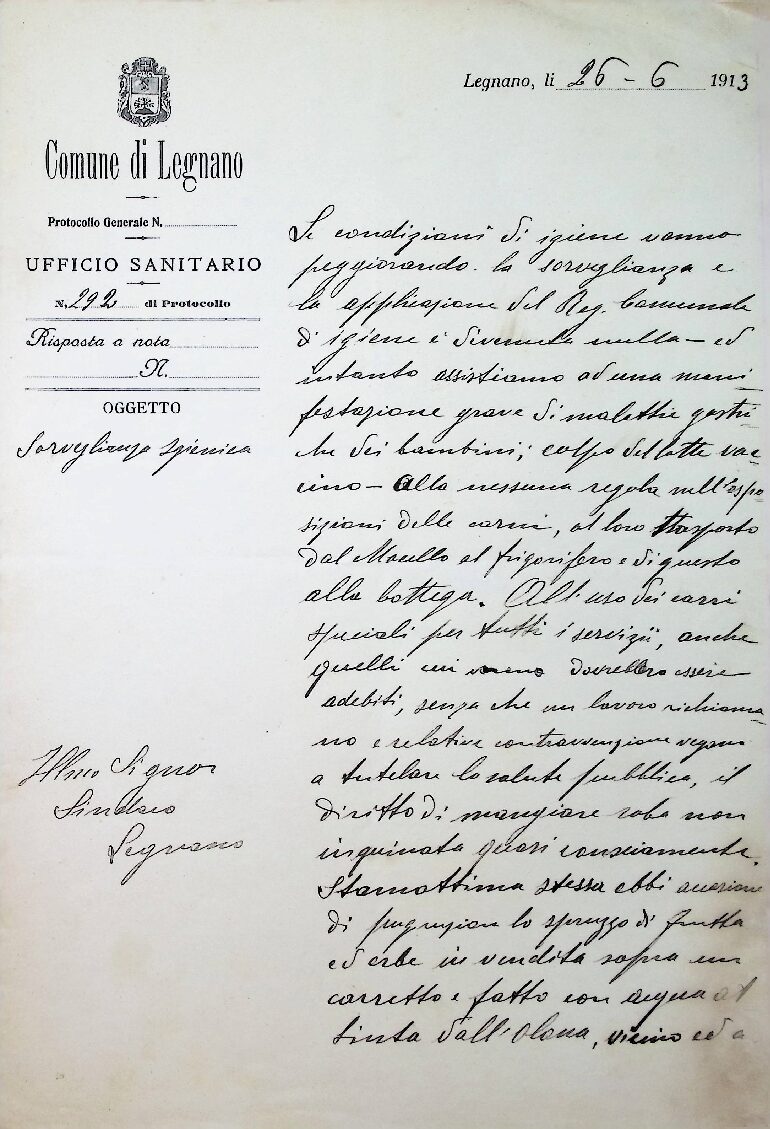 Legnano, li 26 - 6 1913
Comune di Legnano
Protocollo Generale N.
UFFICIO SANITARIO
N. 292 di Protocollo
Risposta a nota
N.
OGGETTO
Sorveglianza Igienica
Illmo Signor
Sindaco
Legnano
Le condizioni di igiene vanno
peggiorando. la sorveglianza e
la applicazione del Reg. Comunale
di igiene è divenuta nulla - ed
intanto assistiamo ad una mani
festazione grave di malattie gastri-
che dei bambini; colpa del latte vac-
cino - alla nessuna regola nell'espo-
sizioni delle carni, al loro trasporto
dal Macello al frigorifero e di questo
alla bottega. All'uso dei carri
speciali per tutti i servizii, anche
quelli cui meno dovrebbero essere
adebiti, senza che un lavoro richiama-
no e relative contravvenzione vegano
a tutelare la salute pubblica, il
diritto di mangiare roba non
inquinata quasi consciamente.
Stamattima stessa ebbi occasione
di lo spruzzo di frutta
ed erbe in vendita sopra un
carretto e fatto con acqua at
tinta dall'Olona, vicino ed a